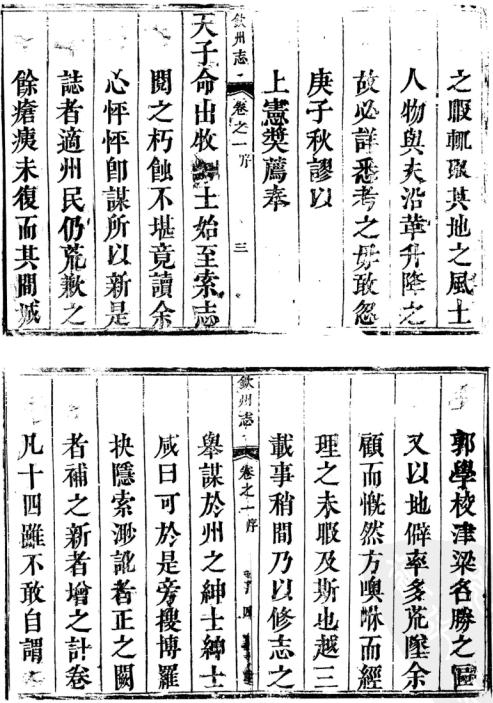 之暇輒取其地之風土
人物與夫沿革升降之
故必詳悉考之毋敢忽
庚子秋謬以
上憲獎薦奉
欽州志 卷之一序 三
天子命出牧茲土始至索志
閱之朽蝕不堪竟讀余
心怦怦卽謀所以新是
誌者適州民仍荒歉之
餘瘡痍未復而其間城
郭學校津梁名勝之區
又以地僻率多荒墜余
顧而慨然方噢咻而經
理之未暇及斯也越三
載事稍間乃以修志之
欽州志 卷之一序 四
舉謀於州之紳士紳士
咸曰可於是旁搜博羅
抉隱索渺訛者正之闕
者補之新者增之計卷
凡十四雖不敢自謂